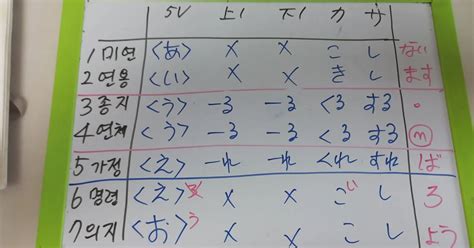 5V 上1 下1 カ サ
1 미연 <あ> × × こ し ない
2 연용 <い> × × き し ます
3 종지 <う> ーる ーる くる する 。
4 연체 <う> ーる ーる くる する m
5 가정 <え> ーれ ーれ くれ すれ ば
6 명령 <え> × × こい し ろ
7 의지 <お>う × × こ し よう